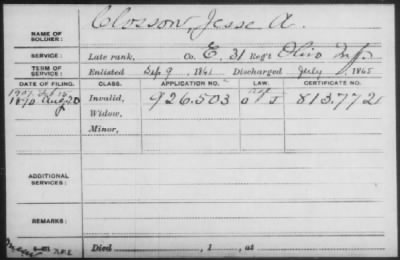 NAME OF SOLDIER: Closson, Jesse A.
SERVICE: Late rank, Co. E, 31 Reg't Ohio Inf
TERM OF SERVICE: Enlisted Sep 9, 1861 Discharged July , 1865
DATE OF FILING. CLASS. APPLICATION NO. LAW. CERTIFICATE NO.
1907
1890 Aug 20 Invalid, 926.503 813.772
Widow,
Minor,
ADDITIONAL SERVICES:
REMARKS:
Died , 1 , at